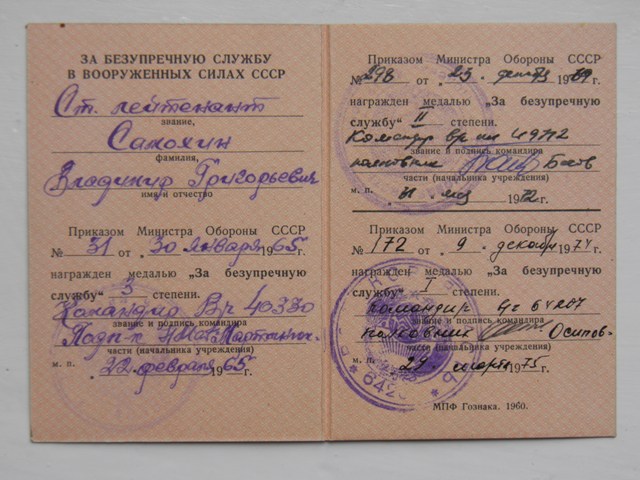 ЗА БЕЗУПРЕЧНУЮ СЛУЖБУ
В ВООРУЖЕННЫХ СИЛАХ СССР
Ст. лейтенант
звание,
Самохин
фамилия,
Владимир Григорьевич
имя и отчество
Приказом Министра Обороны СССР
№ 31 от 30 января 1965 г.
награжден медалью „За безупречную
службу" 3 степени.
Командир 40330
звание и подпись командира
Подп-к
части (начальника учреждения)
м. п. 22 февраля 1965 г.
Приказом Министра Обороны СССР
№ 298 от 25. 19 г.
награжден медалью „За безупречную
службу" II степени.
Командир
звание и подпись командира
полковник
части (начальника учреждения)
м. п. 31 1972 г.
Приказом Министра Обороны СССР
№ 172 от 9. декабря 1974 г.
награжден медалью „За безупречную
службу" I степени.
командир
звание и подпись командира
полковник Осипов
части (начальника учреждения)
м. п. 29. марта 1975 г.
МПФ Гознака. 1960.